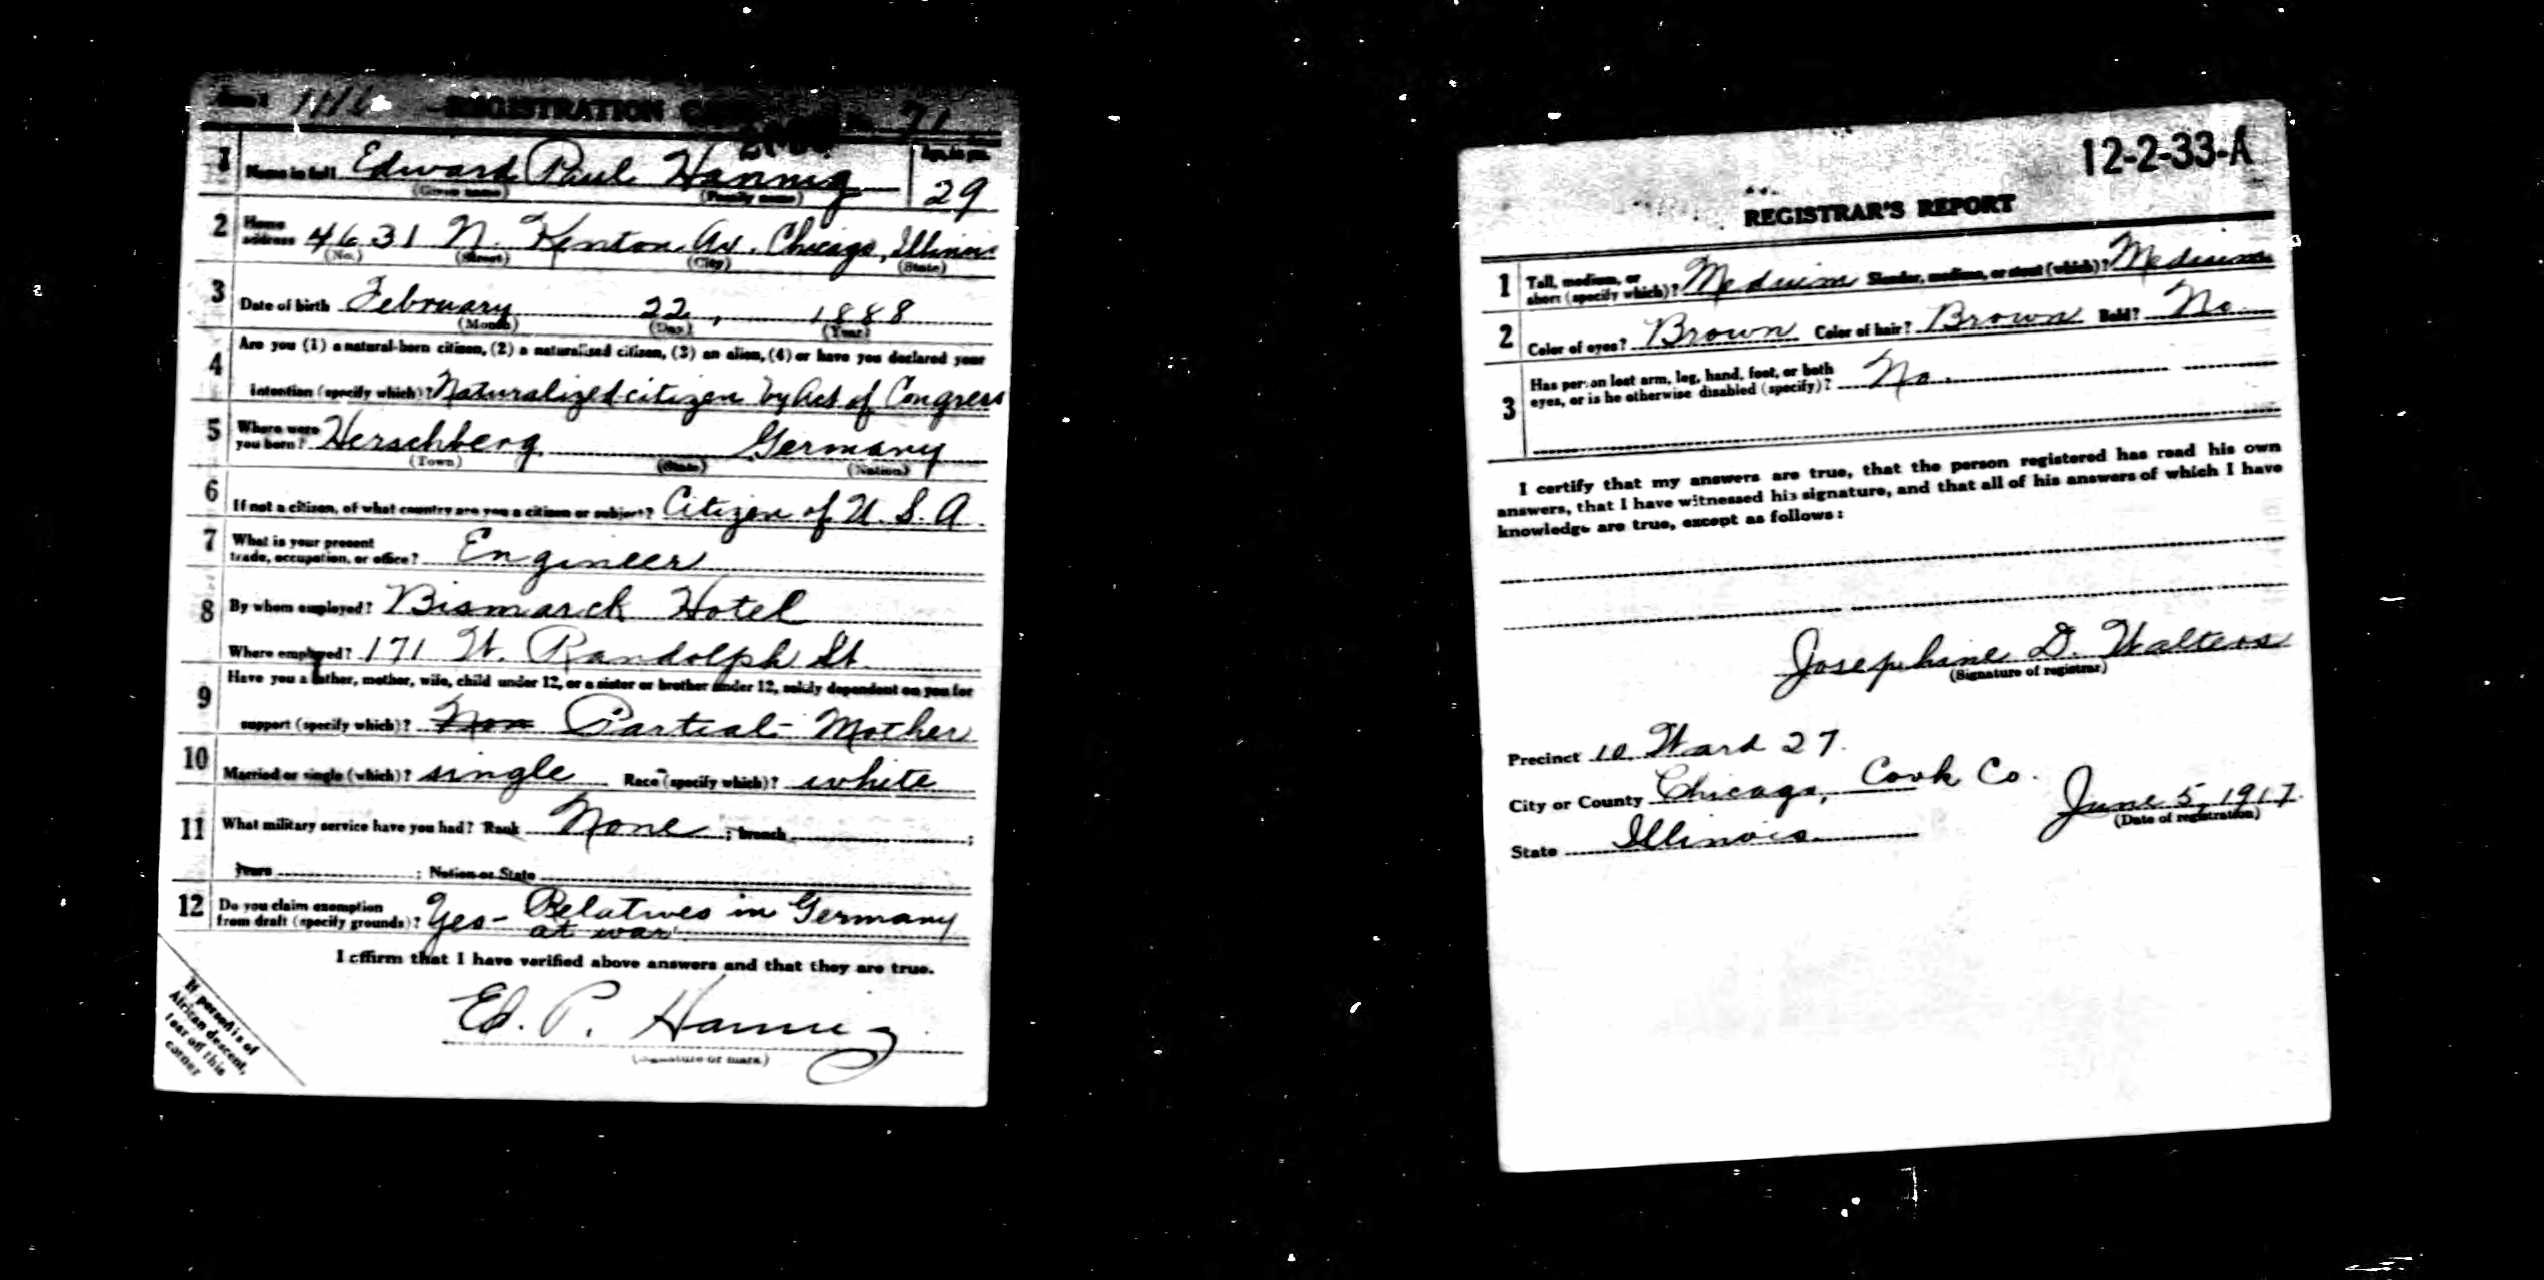 Form 1 1116 REGISTRATION CARD 71
1 Name in full Edward Paul Hannig Age, in yrs. 29
(Given name) (Family name)
2 Home address 4631 N. Kenton Av. Chicago, Illinois
(No.) (Street) (City) (State)
3 Date of birth February 22, 1888
(Month) (Day) (Year)
4 Are you (1) a natural-born citizen, (2) a naturalized citizen, (3) an alien, (4) or have you declared your
intention (specify which)? Naturalized citizen by Act of Congress
5 Where were you born? Herschberg Germany
(Town) (State) (Nation)
6 If not a citizen, of what country are you a citizen or subject? Citizen of U. S. A.
7 What is your present trade, occupation, or office? Engineer
8 By whom employed? Bismarck Hotel
Where employed? 171 W. Randolph St.
9 Have you a father, mother, wife, child under 12, or a sister or brother under 12, solely dependent on you for
support (specify which)? Non Partial - Mother
10 Married or single (which)? single Race (specify which)? white
11 What military service have you had? Rank None ; branch ;
Years ; Nation or State
12 Do you claim exemption from draft (specify grounds)? Yes - Relatives in Germany
at war
I affirm that I have verified above answers and that they are true.
Ed. P. Hannig
(Signature or mark)
If person is of
African descent,
tear off this
corner
12-2-33-A
REGISTRAR'S REPORT
1 Tall, medium, or short (specify which)? Medium Slender, medium, or stout (which)? Medium
2 Color of eyes? Brown Color of hair? Brown Bald? No
3 Has person lost arm, leg, hand, foot, or both
eyes, or is he otherwise disabled (specify)? No.
I certify that my answers are true, that the person registered has read his own
answers, that I have witnessed his signature, and that all of his answers of which I have
knowledge are true, except as follows:
Josephine D. Walters
(Signature of registrar)
Precinct 10 Ward 27.
City or County Chicago, Cook Co.
State Illinois June 5, 1917.
(Date of registration)